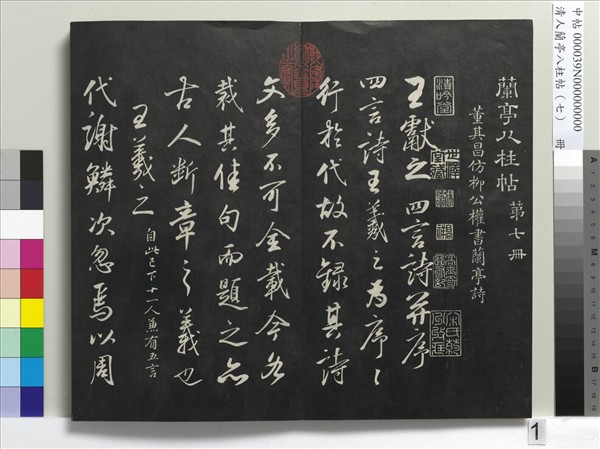 蘭亭八柱帖 第七冊
董其昌仿柳公權書蘭亭詩
王獻之四言詩并序
四言詩王羲之為序〻
行於代故不錄其詩
文多不可全載今各
裁其佳句而題之亦
古人斷章之義也
王羲之 自此已下十一人兼有五言
代謝鱗次忽焉以周
中帖 000039N000000000
清人蘭亭八柱帖(七) 冊
1